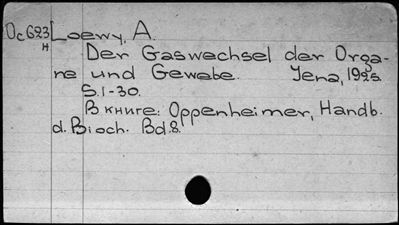 Ос623 Loewy, A.
н
Der Gaswechsel der Orga-
ne und Gewebe. Jena, 1925.
S. 1-30.
В книге: Oppenheimer, Handb.
d. Bioch. Bd. 8.